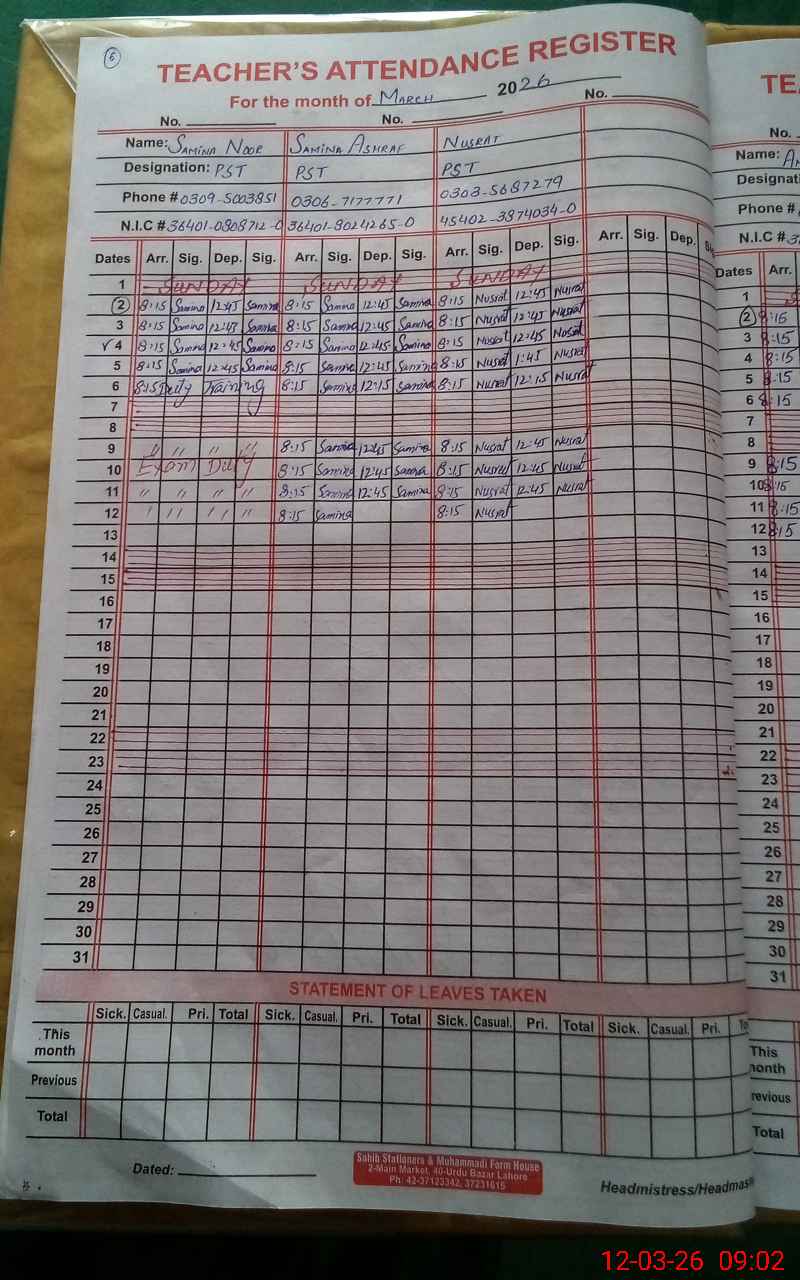 6
TEACHER'S ATTENDANCE REGISTER
For the month of March 2026
No. No. No.
Name: Samina Noor Samina Ashraf Nusrat
Designation: PST PST PST
Phone # 0309-5003851 0306-7177771 0303-5687279
N.I.C # 36401-0808712-0 36401-8024265-0 45402-3874034-0
Dates Arr. Sig. Dep. Sig. Arr. Sig. Dep. Sig. Arr. Sig. Dep. Sig. Arr. Sig. Dep.
1 SUNDAY SUNDAY SUNDAY
2 8:15 Samina 12:45 Samina 8:15 Samina 12:45 Samina 8:15 Nusrat 12:45 Nusrat
3 8:15 Samina 12:45 Samina 8:15 Samina 12:45 Samina 8:15 Nusrat 12:45 Nusrat
4 8:15 Samina 12:45 Samina 8:15 Samina 12:45 Samina 8:15 Nusrat 12:45 Nusrat
5 8:15 Samina 12:45 Samina 8:15 Samina 12:45 Samina 8:15 Nusrat 1:45 Nusrat
6 8:15 Duty Training 8:15 Samina 12:15 Samina 8:15 Nusrat 12:15 Nusrat
7
8
9 " " " " 8:15 Samina 12:45 Samina 8:15 Nusrat 12:45 Nusrat
10 Exam Duty 8:15 Samina 12:45 Samina 8:15 Nusrat 12:45 Nusrat
11 " " " " 8:15 Samina 12:45 Samina 8:15 Nusrat 12:45 Nusrat
12 " " " " 8:15 Samina 8:15 Nusrat
13
14
15
16
17
18
19
20
21
22
23
24
25
26
27
28
29
30
31
STATEMENT OF LEAVES TAKEN
Sick. Casual. Pri. Total Sick. Casual. Pri. Total Sick. Casual. Pri. Total Sick. Casual. Pri.
This month
Previous
Total
Dated:
Sahib Stationers & Muhammadi Form House
2-Main Market, 40-Urdu Bazar Lahore
Ph: 42-37123342, 37231615
Headmistress/Headmas
TE
No.
Name:
Designati
Phone #
N.I.C #
Dates Arr.
1
2 8:15
3 8:15
4 8:15
5 8:15
6 8:15
7
8
9 8:15
10 8:15
11 8:15
12 8:15
13
14
15
16
17
18
19
20
21
22
23
24
25
26
27
28
29
30
31
This
month
revious
Total
12-03-26 09:02